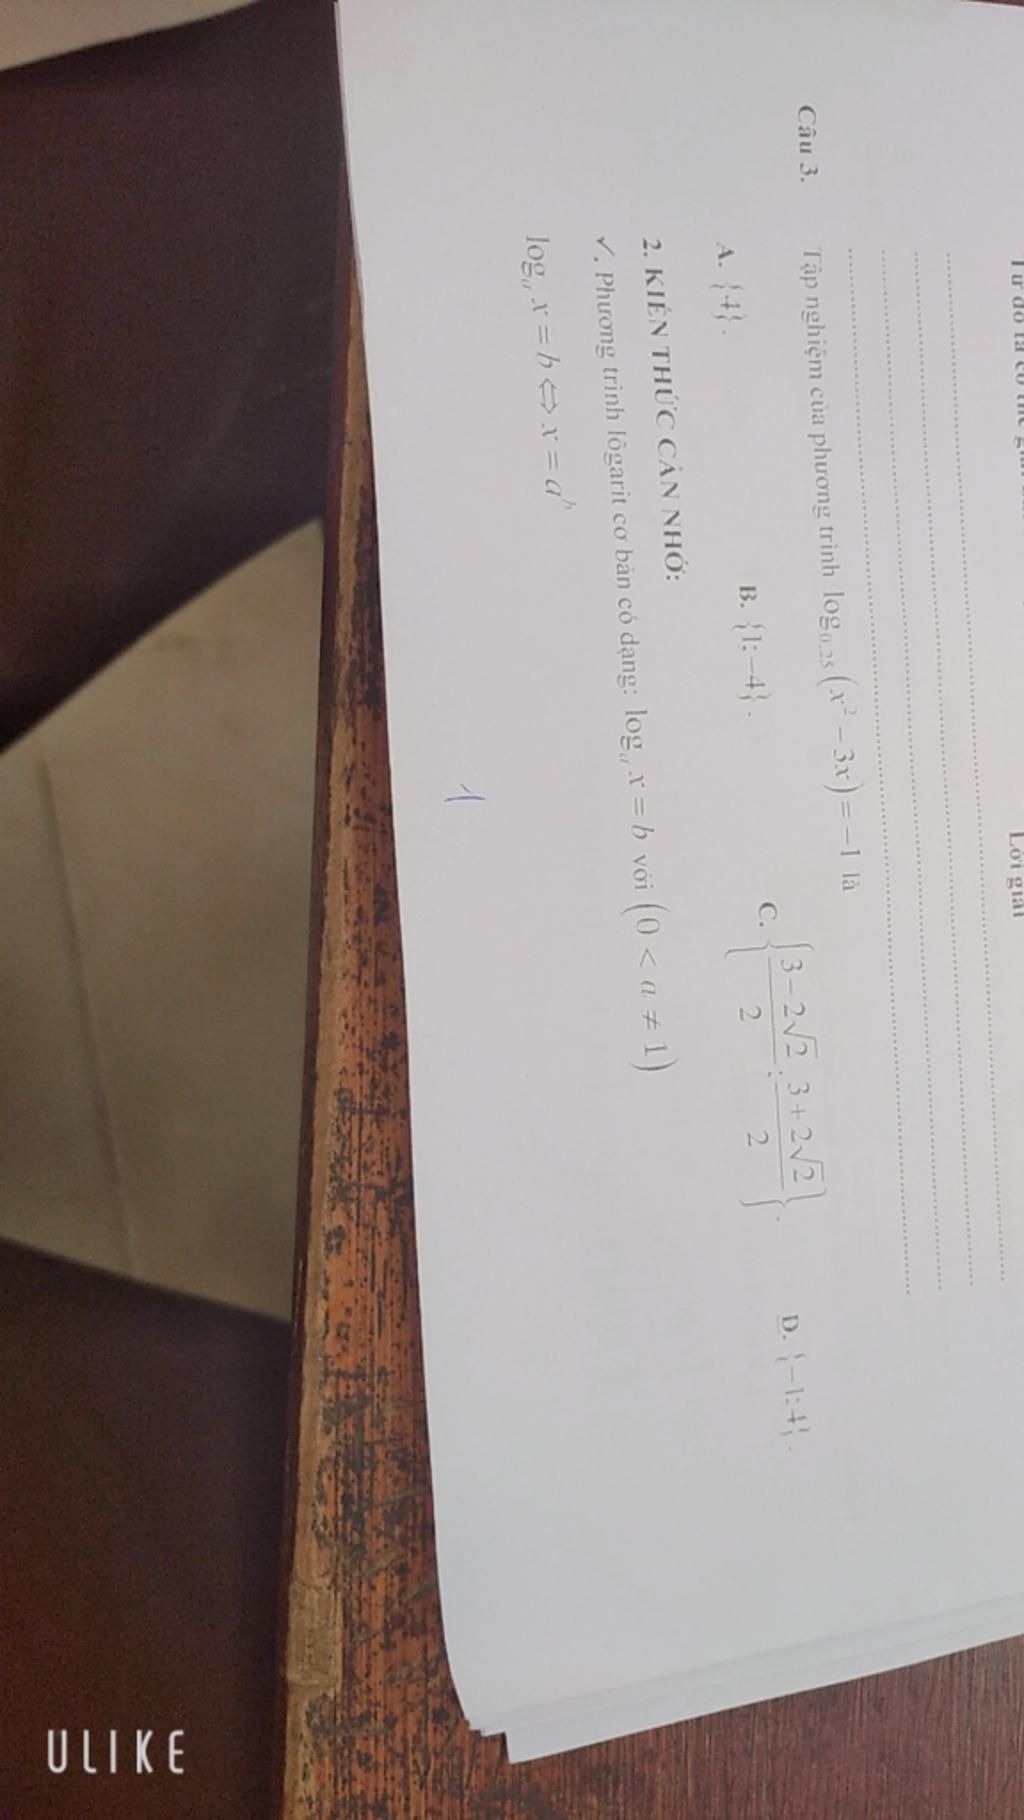 Lời giải
Câu 3. Tập nghiệm của phương trình log₀,₂₅(x² − 3x) = −1 là
A. {4}. B. {1; −4}. C. {(3 − 2√2)/2; (3 + 2√2)/2}. D. {−1; 4}.
2. KIẾN THỨC CẦN NHỚ:
✓. Phương trình lôgarit cơ bản có dạng: logₐ x = b với (0 < a ≠ 1)
logₐ x = b ⇔ x = aᵇ
1
ULIKE